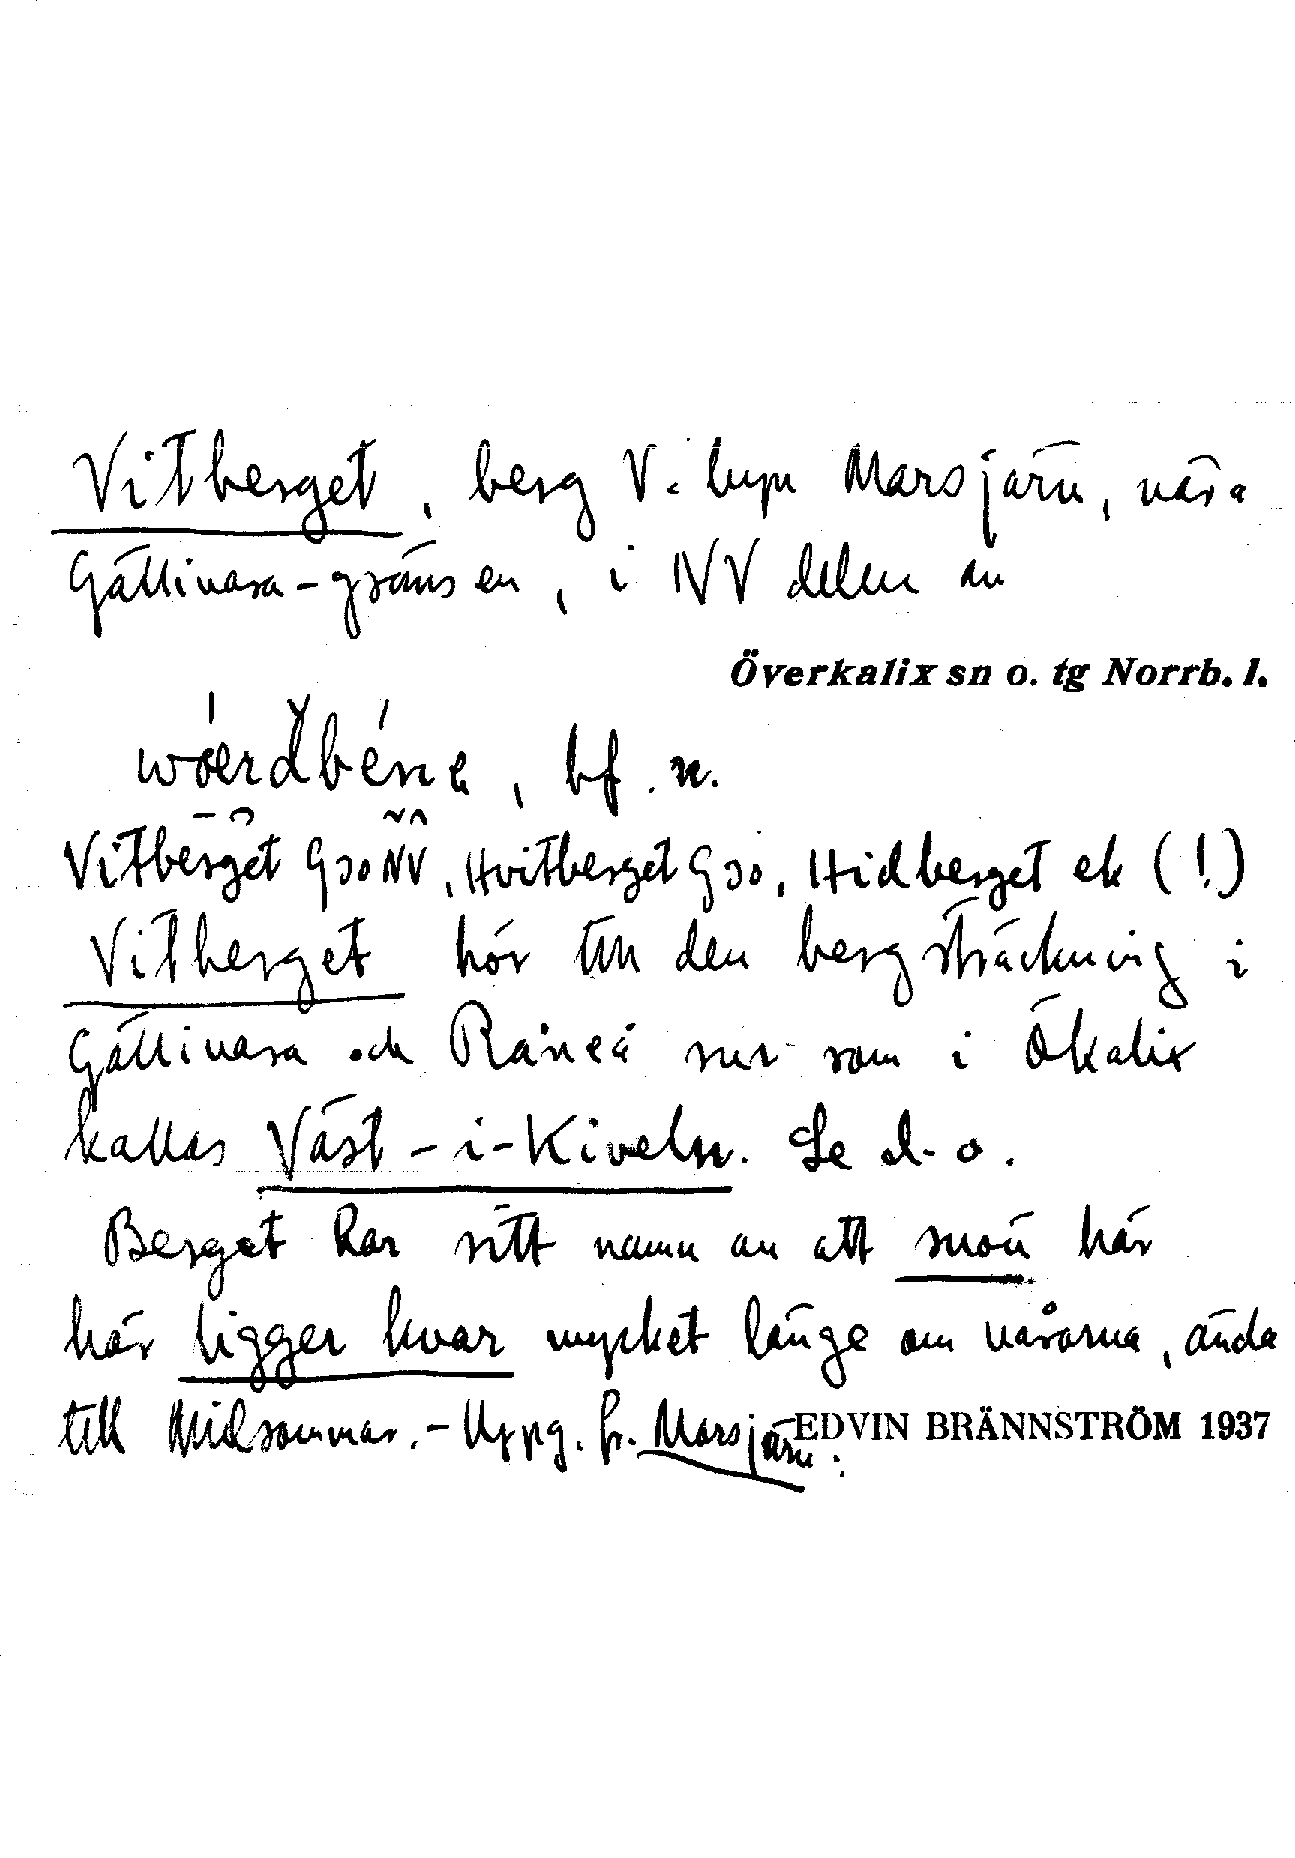 Vitberget, berg V. byn Marsjärv, nära
Gällivara-gränsen, i NV delen av
Överkalix sn o. tg Norrb. l.
bf. n.
Vitberget G30NV, Hvitberget G30, Hidberget ek (!)
Vitberget hör till den bergsträckning i
Gällivara och Råneå snr som i Ökalix
kallas Väst-i-Kiveln. Se d.o.
Berget har sitt namn av att snön här
här ligger kvar mycket länge om vårarna, ända
till Midsommar. - Uppg. fr. Marsjärv.
EDVIN BRÄNNSTRÖM 1937